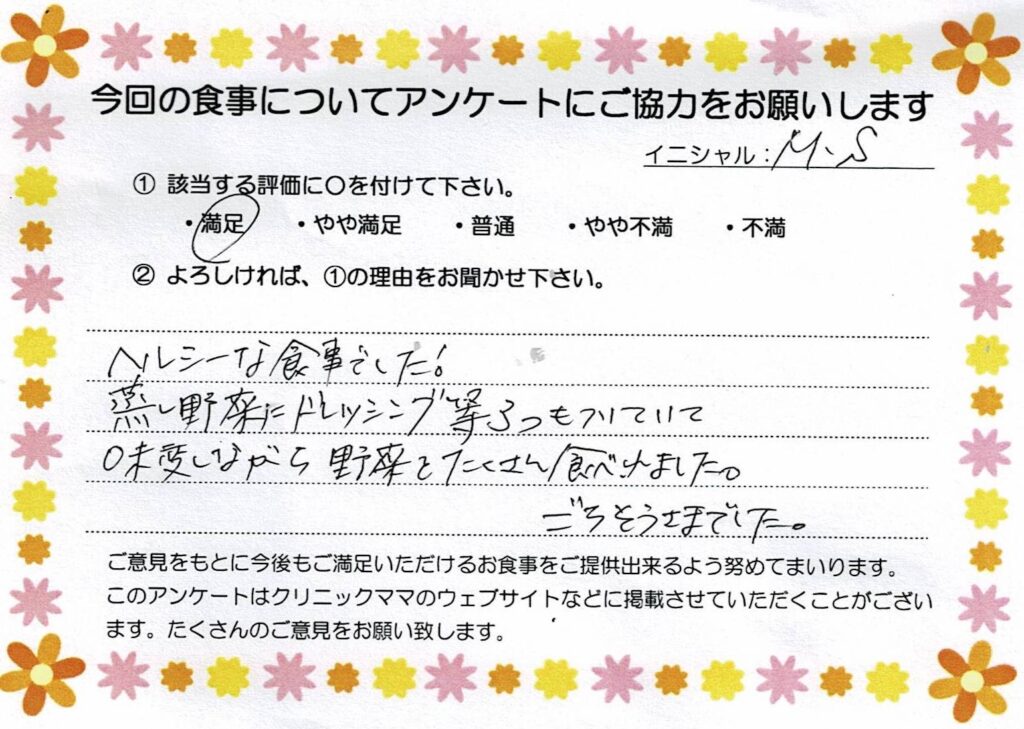 今回の食事についてアンケートにご協力をお願いします
イニシャル：M.S
① 該当する評価に〇を付けて下さい。
・満足　・やや満足　・普通　・やや不満　・不満
② よろしければ、①の理由をお聞かせ下さい。
ヘルシーな食事でした!
蒸し野菜にドレッシング等3つもついていて
味変しながら野菜をたくさん食べれました。
ごちそうさまでした。
ご意見をもとに今後もご満足いただけるお食事をご提供出来るよう努めてまいります。
このアンケートはクリニックママのウェブサイトなどに掲載させていただくことがござい
ます。たくさんのご意見をお願い致します。